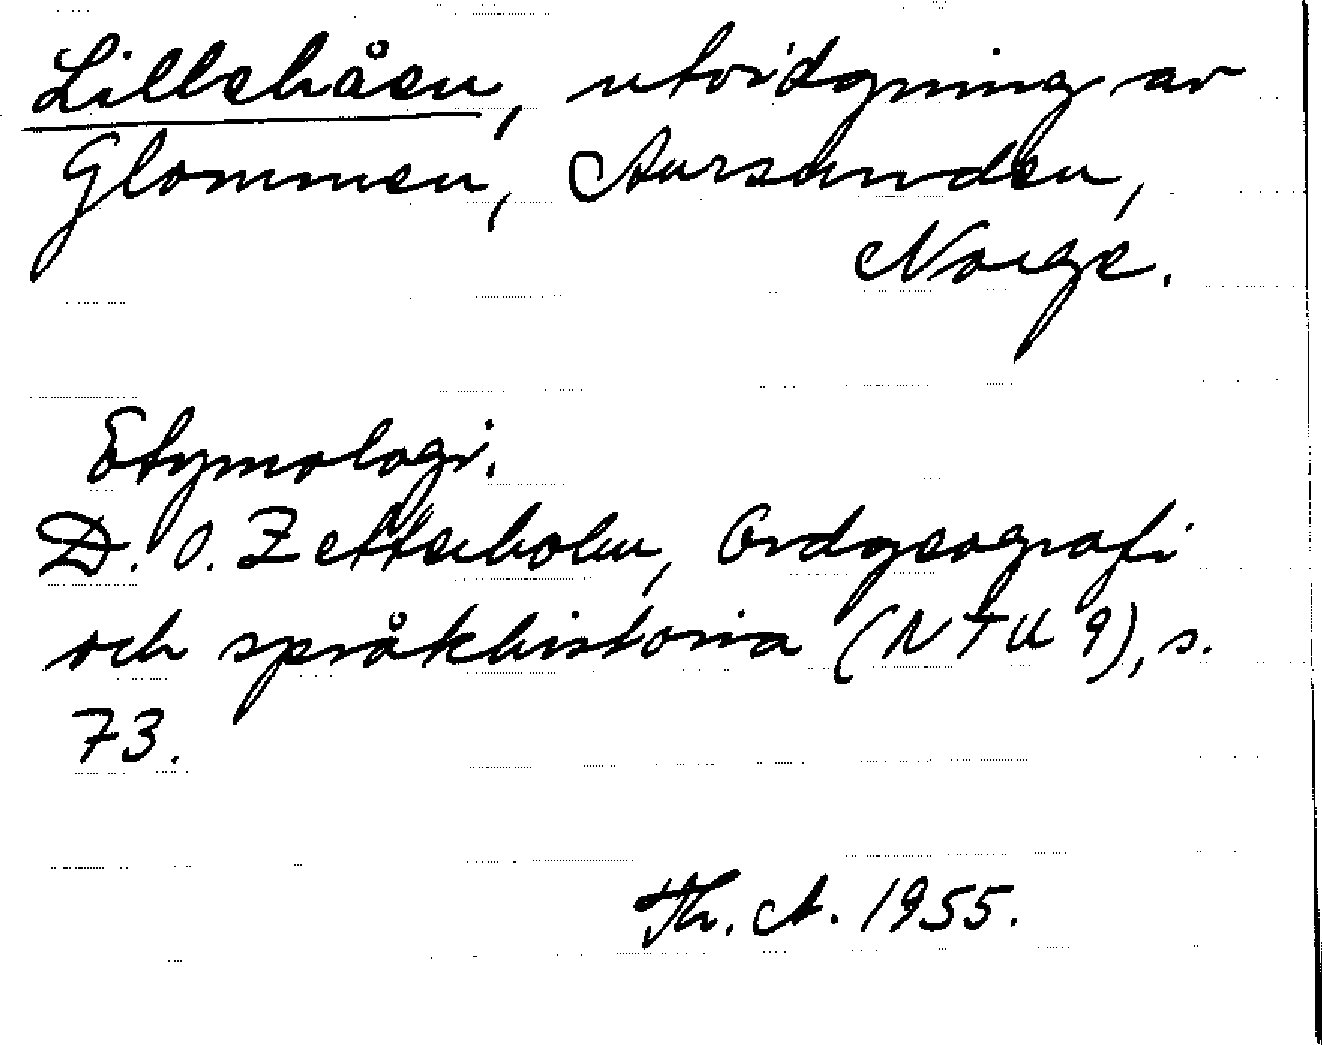 Lillehåen, utvidgning av
Glommen, Aursunden,
Norge.
Etymologi.
D. O. Zetterholm, Ordgeografi
och språkhistoria (NTU 9), s.
73.
Th. A. 1955.